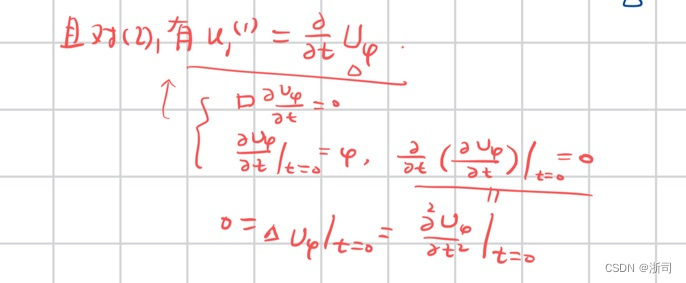 且对(2), 有 u₁⁽¹⁾ = ∂/∂t U_φ .
□ ∂U_φ/∂t = 0
∂U_φ/∂t |_{t=0} = φ, ∂/∂t (∂U_φ/∂t) |_{t=0} = 0
0 = Δ U_φ |_{t=0} = ∂²U_φ/∂t² |_{t=0}
CSDN @浙司